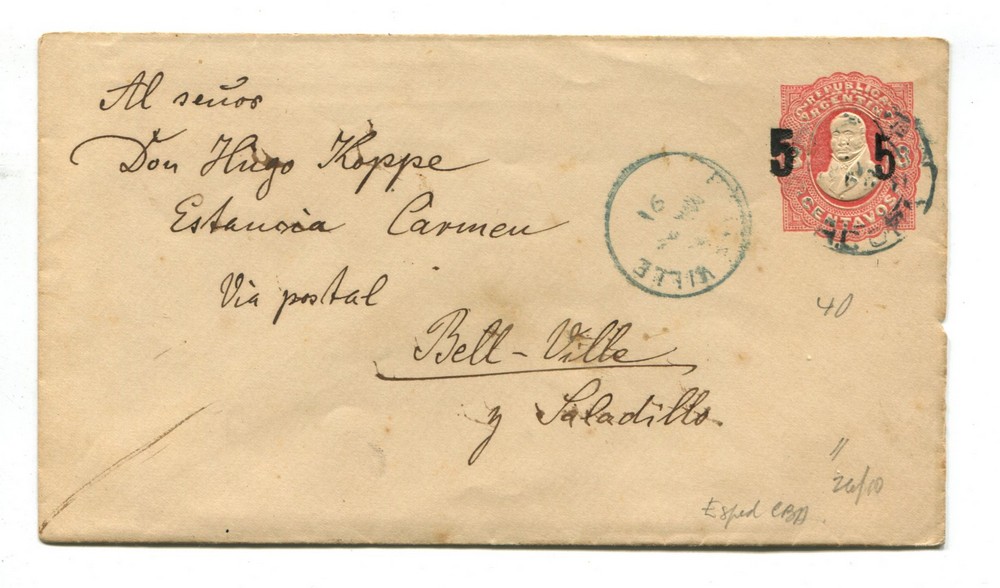 Al señor
Don Hugo Koppe
Estancia Carmen
Via postal
Bell-Ville
y Saladillo
REPUBLICA
ARGENTINA
5 5
CENTAVOS
VILLE
91
40
"
24/10
Esped CBA